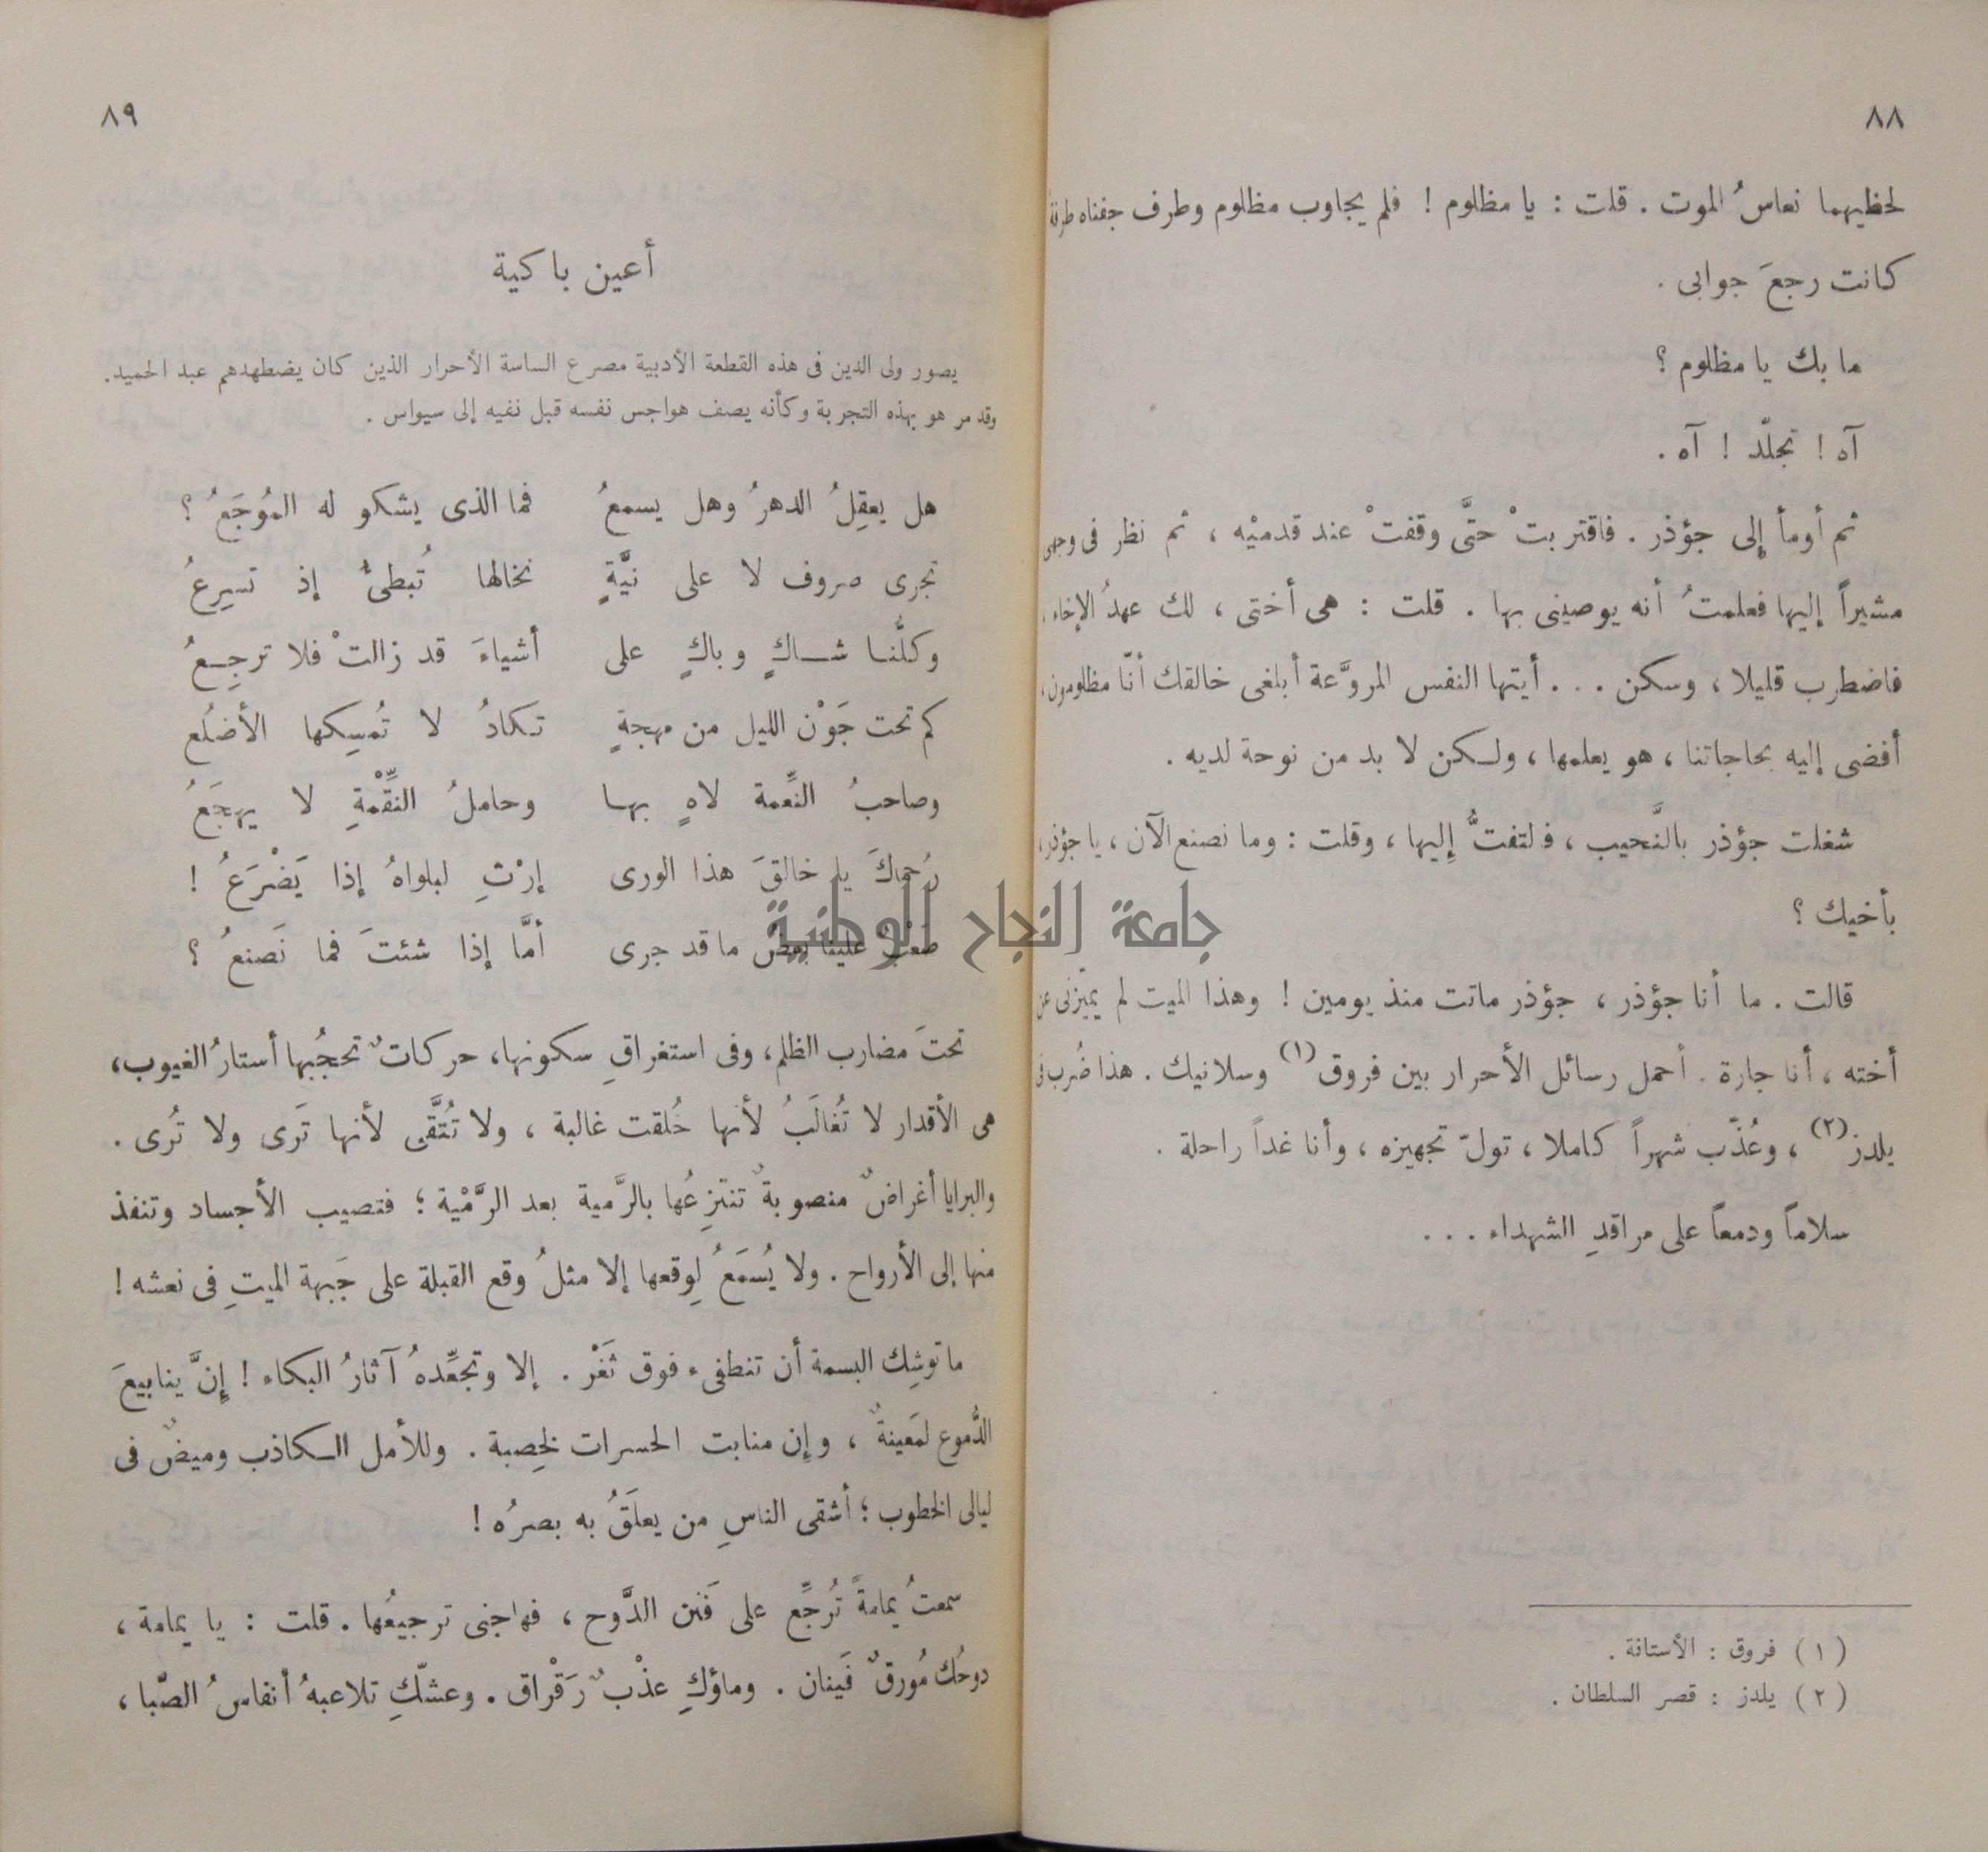 ٨٨
لحظيهما نعاسُ الموت . قلت : يا مظلوم ! فلم يجاوب مظلوم وطرف جفناه طرفة
كانت رجعَ جوابى .
ما بك يا مظلوم ؟
آه ! تجلّد ! آه .
ثم أومأ إلى جؤذر . فاقتربتْ حتَّى وقفتْ عند قدميْه ، ثم نظر فى وجهى
مشيراً إليها فعلمتُ أنه يوصينى بها . قلت : هى أختى ، لك عهدُ الإخاء ،
فاضطرب قليلا ، وسكن . . . أيتها النفس المروَّعة أبلغى خالقك أنّا مظلومون ،
أفضى إليه بحاجاتنا ، هو يعلمها ، ولكن لا بد من نوحة لديه .
شغلت جؤذر بالنَّحيب ، فلتفتُّ إليها ، وقلت : وما نصنع الآن ، يا جؤذر ،
بأخيك ؟
قالت . ما أنا جؤذر ، جؤذر ماتت منذ يومين ! وهذا الميت لم يميّزنى عن
أخته ، أنا جارة . أحمل رسائل الأحرار بين فروق (١) وسلانيك . هذا ضُرب فى
يلدز (٢) ، وعُذّب شهراً كاملا ، تولّ تجهيزه ، وأنا غداً راحلة .
سلاماً ودمعاً على مراقدِ الشهداء . . .
( ١ ) فروق : الأستانة .
( ٢ ) يلدز : قصر السلطان .
٨٩
أعين باكية
يصور ولى الدين فى هذه القطعة الأدبية مصرع الساسة الأحرار الذين كان يضطهدهم عبد الحميد .
وقد مر هو بهذه التجربة وكأنه يصف هواجس نفسه قبل نفيه إلى سيواس .
هل يعقِلُ الدهرُ وهل يسمعُ فما الذى يشكو له المُوجَعُ ؟
تجرى صروف لا على نيَّةٍ نخالها تُبطئُ إذ تسرِعُ
وكلُّنا شاكٍ وباكٍ على أشياءَ قد زالتْ فلا ترجِعُ
كم تحت جَوْن الليل من مهجةٍ تكادُ لا تُمسِكها الأضلُع
وصاحبُ النِّعمة لاهٍ بها وحاملُ النقِّمْةِ لا يهجَعُ
رُحماكَ يا خالقَ هذا الورى إرْثِ لبلواهُ إذا يَضْرَعُ !
صَعْبٌ علينا بعضُ ما قد جرى أمَّا إذا شئتَ فما نَصنعُ ؟
تحتَ مضارب الظلم ، وفى استغراقِ سكونها ، حركاتٌ تحجُبها أستارُ الغيوب ،
هى الأقدار لا تُغالَبُ لأنها خُلقت غالبة ، ولا تُتَّقى لأنها تَرى ولا تُرى .
والبرايا أغراضٌ منصوبةٌ تنتزِعُها بالرَّمية بعد الرَّمْية ؛ فتصيب الأجساد وتنفذ
منها إلى الأرواح . ولا يُسمَعُ لِوقعها إلا مثلُ وقع القبلة على جَبهة الميتِ فى نعشه !
ما توشِك البسمة أن تنطفىء فوق ثَغْر . إلا وتجعِّدهُ آثارُ البكاء ! إنَّ ينابيعَ
الدُّموع لمَعينةٌ ، وإن منابت الحسرات لخِصبة . وللأمل الكاذب وميضٌ فى
ليالى الخطوب ؛ أشقى الناسِ من يعلَقُ به بصرُه !
سمعتُ يمامةً تُرجِّع على فَنن الدَّوح ، فهاجنى ترجيعُها . قلت : يا يمامة ،
دوحُك مُورقٌ فَينان . وماؤكِ عذْبٌ رَقْراق . وعشّكِ تلاعبهُ أنفاسُ الصّبا ،
جامعة النجاح الوطنية